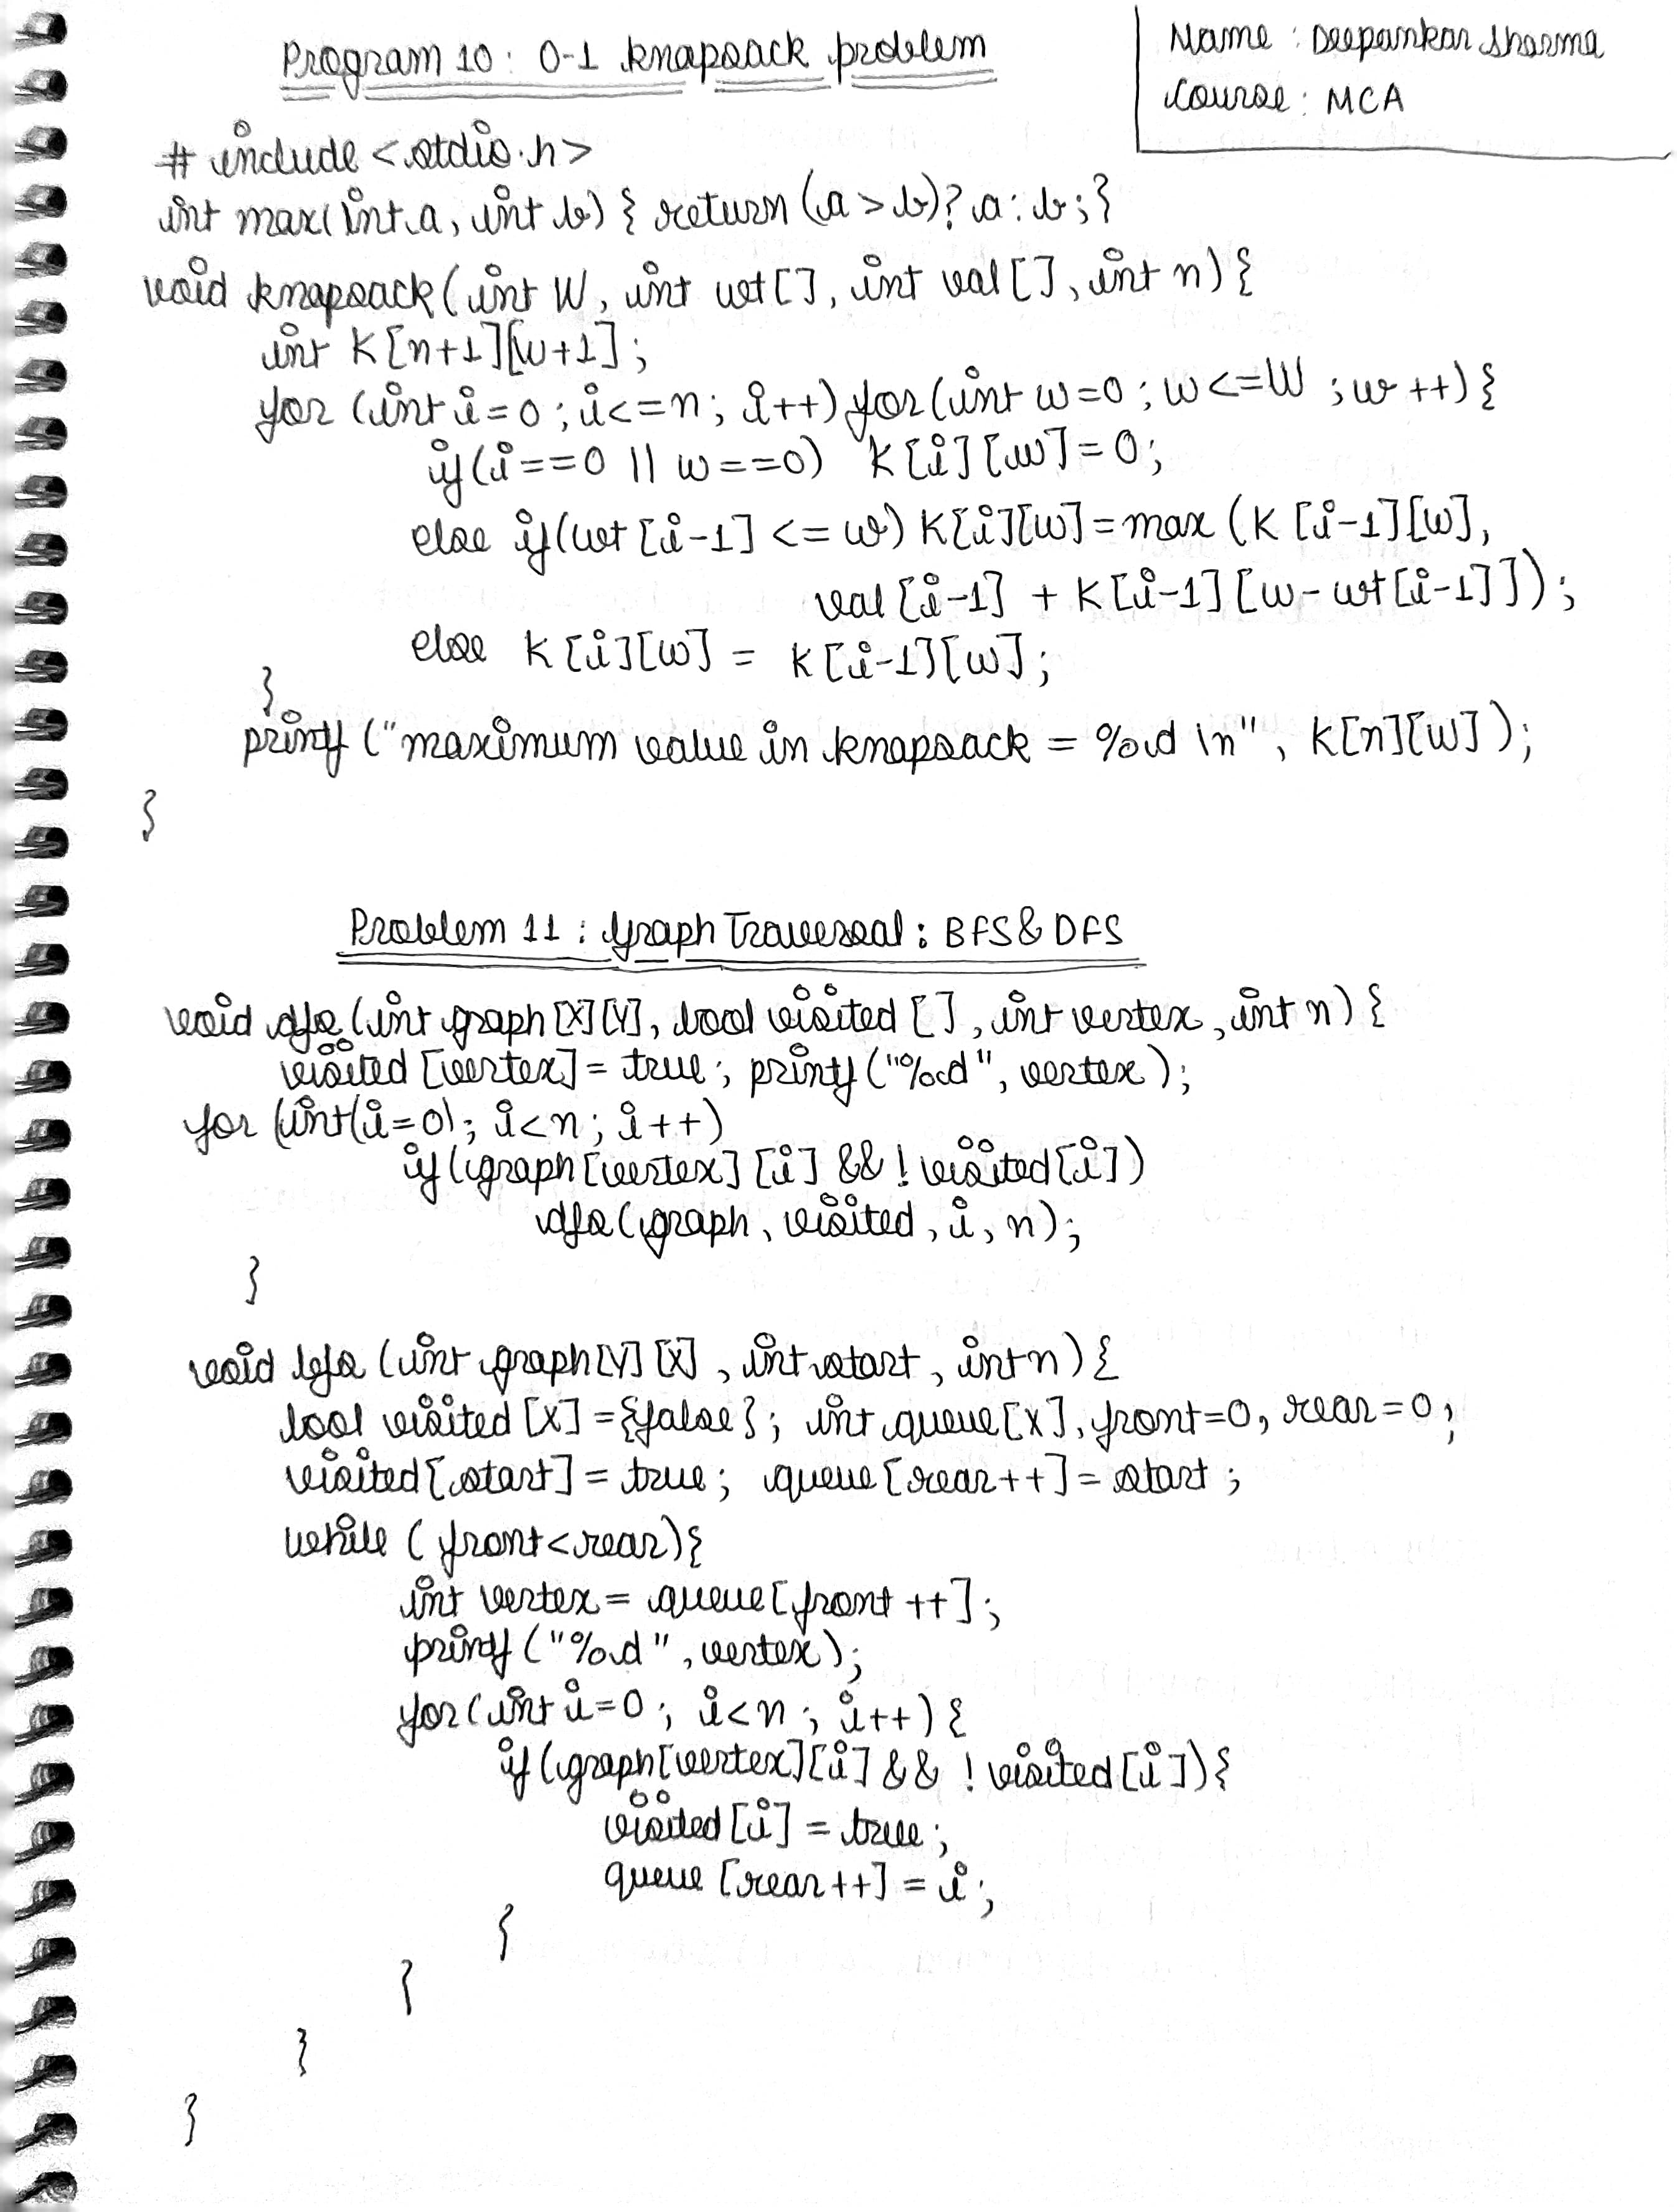 Program 10: 0-1 knapsack problem
Name : Deepamkar Sharma
Course : MCA
# include <stdio.h>
int max(int a, int b) { return (a > b)? a : b ; }
void knapsack( int W, int wt[], int val[], int n) {
int K[n+1][W+1];
for (int i=0 ; i<=n ; i++) for (int w=0 ; w<=W ; w++) {
if (i==0 || w==0) K[i][w]=0;
else if(wt[i-1] <= w) K[i][w]=max (K [i-1][w],
val[i-1] + K[i-1][w-wt[i-1]]);
else K[i][w] = K[i-1][w];
}
printf ("maximum value in knapsack = %d \n", K[n][W]);
}
Problem 11 : Graph Traversal : BFS & DFS
void dfs (int graph[X][Y], bool visited [], int vertex, int n) {
visited [vertex] = true ; printf ("%d", vertex);
for (int(i=0); i<n; i++)
if (graph[vertex][i] && ! visited[i])
dfs(graph, visited, i, n);
}
void bfs (int graph[Y][X], int start, int n) {
bool visited [X] ={false}; int queue[X], front=0, rear=0;
visited[start] = true; queue[rear++]=start ;
while ( front<rear){
int vertex = queue[front ++];
printf ("%d", vertex);
for(int i=0 ; i<n ; i++) {
if (graph[vertex][i] && ! visited[i]){
visited[i] = true;
queue [rear++] = i ;
}
}
}
}